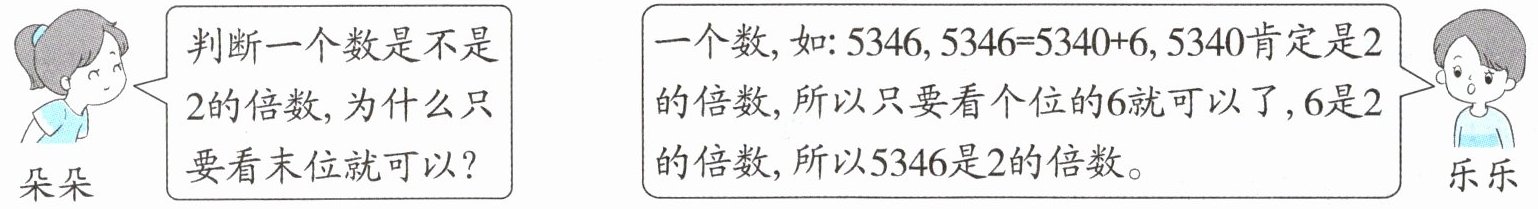 判断一个数是不是
2的倍数,为什么只
要看末位就可以?
朵朵
一个数,如:5346,5346=5340+6,5340肯定是2
的倍数,所以只要看个位的6就可以了,6是2
的倍数,所以5346是2的倍数。
乐乐